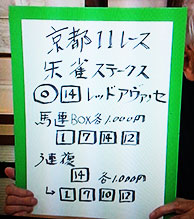 京都11レース
朱雀ステークス
◎ 14 レッドアヴァッセ
馬連BOX各1,000円
1 7 14 12
3連複
14 各1,000円
↳ 1 7 10 12